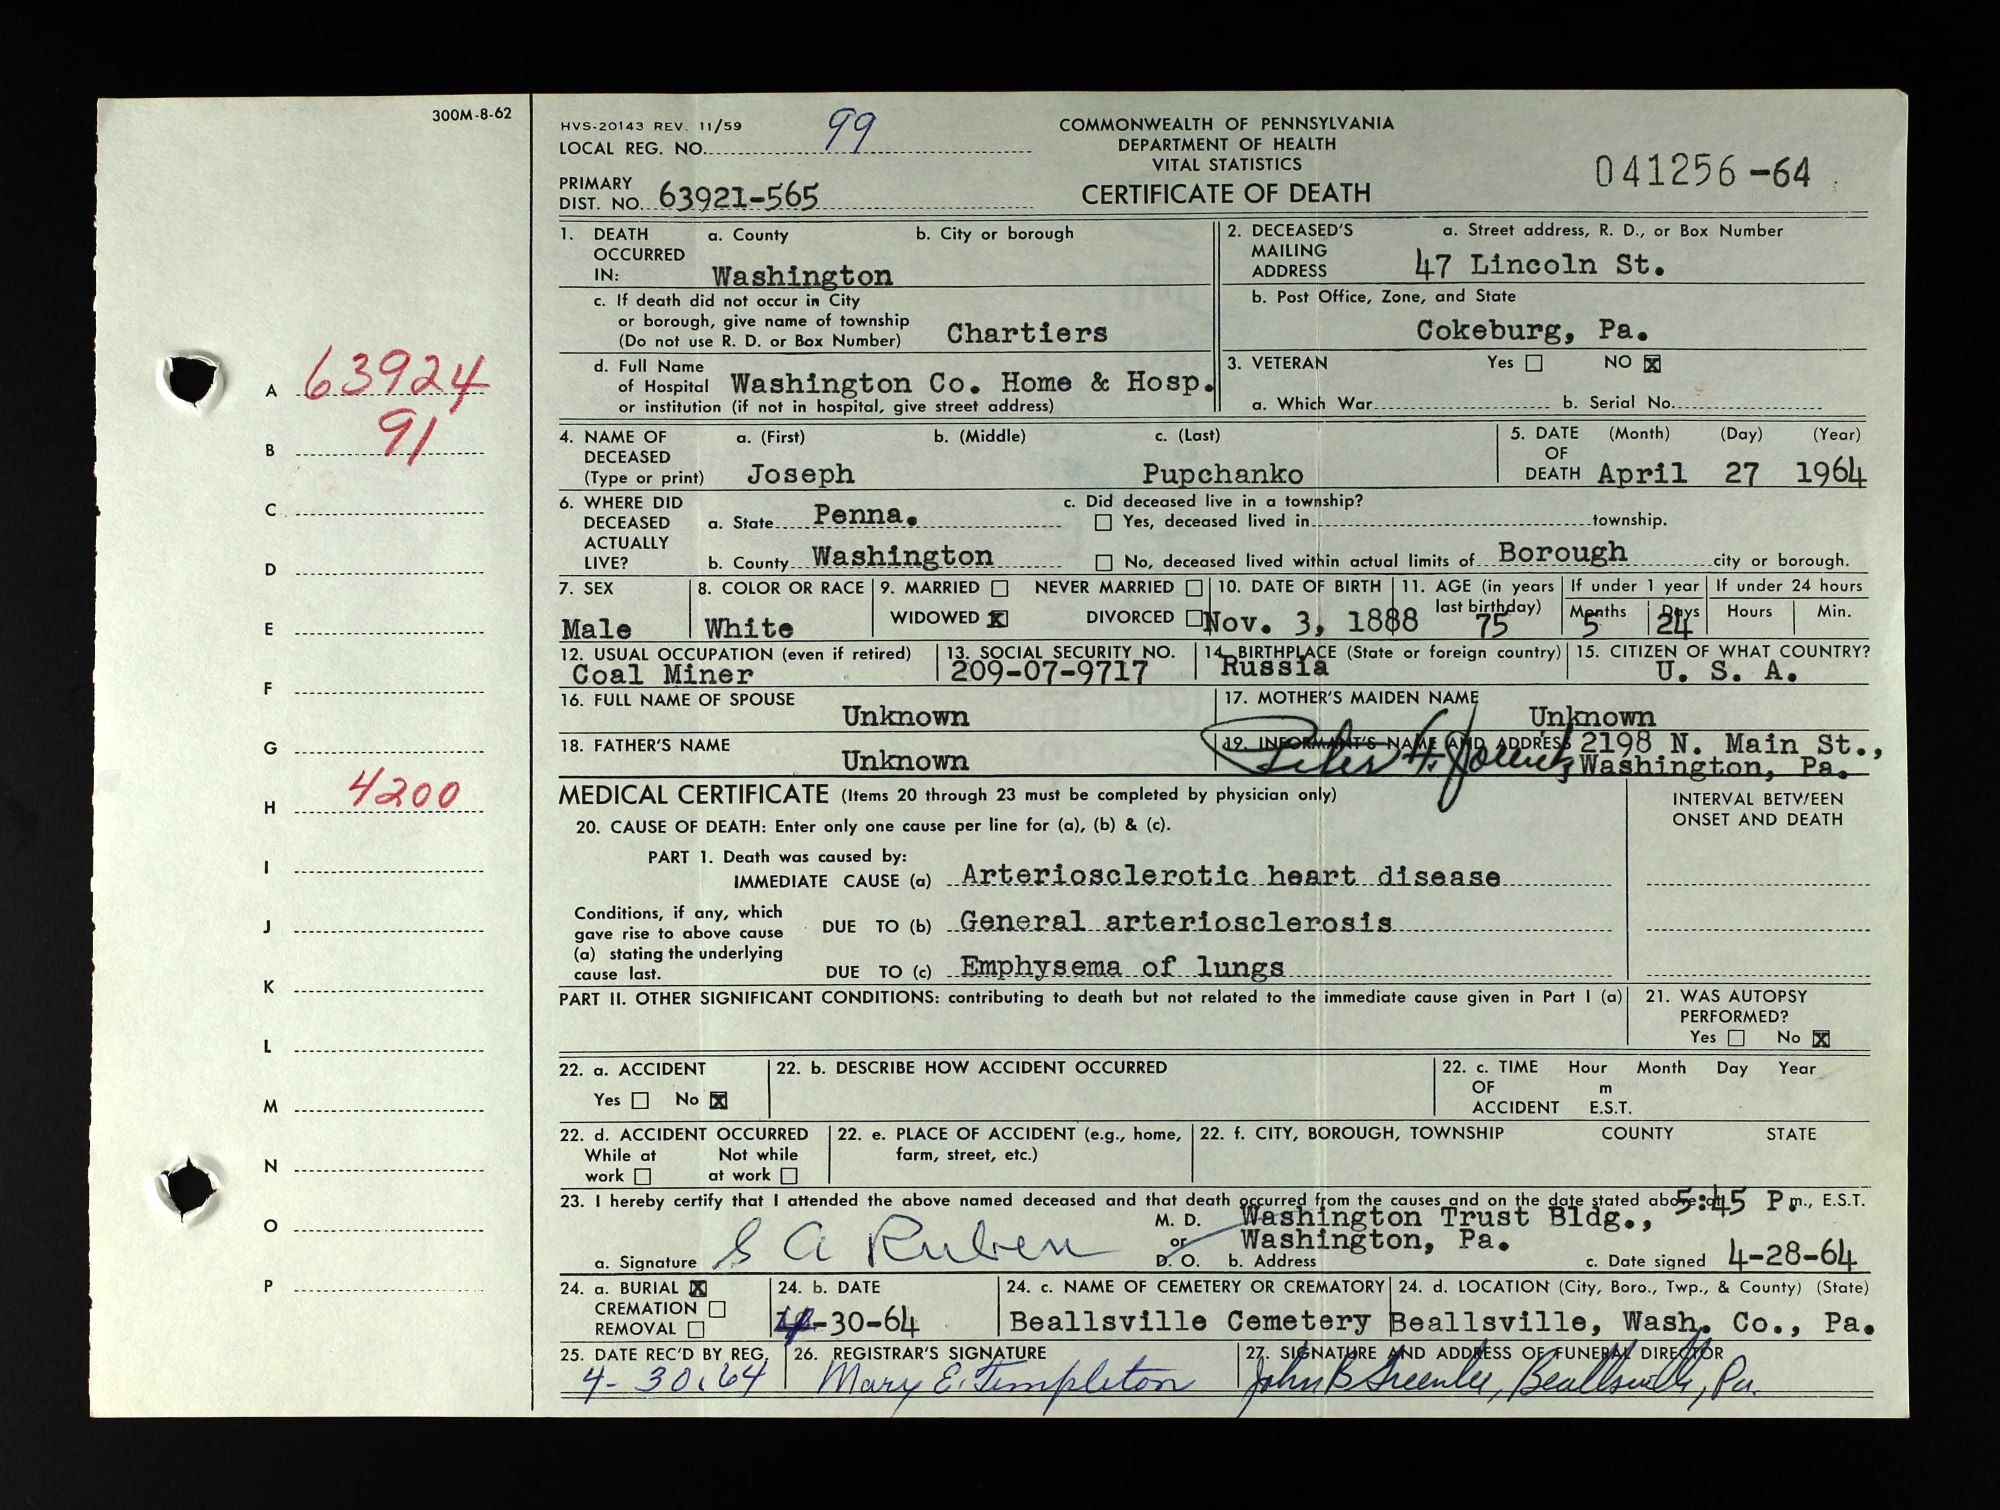 300M-8-62
A 63924
B 91
C
D
E
F
G
H 4200
I
J
K
L
M
N
O
P
HVS-20143 REV. 11/59
LOCAL REG. NO. 99
PRIMARY
DIST. NO. 63921-565
COMMONWEALTH OF PENNSYLVANIA
DEPARTMENT OF HEALTH
VITAL STATISTICS
CERTIFICATE OF DEATH
041256-64
1. DEATH OCCURRED IN: a. County b. City or borough
Washington
c. If death did not occur in City
or borough, give name of township
(Do not use R. D. or Box Number) Chartiers
d. Full Name
of Hospital Washington Co. Home & Hosp.
or institution (if not in hospital, give street address)
2. DECEASED'S MAILING ADDRESS a. Street address, R. D., or Box Number
47 Lincoln St.
b. Post Office, Zone, and State
Cokeburg, Pa.
3. VETERAN Yes NO X
a. Which War b. Serial No.
4. NAME OF DECEASED (Type or print) a. (First) b. (Middle) c. (Last)
Joseph Pupchanko
5. DATE OF DEATH (Month) (Day) (Year)
April 27 1964
6. WHERE DID DECEASED ACTUALLY LIVE?
a. State Penna.
b. County Washington
c. Did deceased live in a township?
Yes, deceased lived in township.
No, deceased lived within actual limits of Borough city or borough.
7. SEX
Male
8. COLOR OR RACE
White
9. MARRIED NEVER MARRIED
WIDOWED X DIVORCED
10. DATE OF BIRTH
Nov. 3, 1888
11. AGE (in years last birthday)
75
If under 1 year
Months Days
5 24
If under 24 hours
Hours Min.
12. USUAL OCCUPATION (even if retired)
Coal Miner
13. SOCIAL SECURITY NO.
209-07-9717
14. BIRTHPLACE (State or foreign country)
Russia
15. CITIZEN OF WHAT COUNTRY?
U. S. A.
16. FULL NAME OF SPOUSE
Unknown
17. MOTHER'S MAIDEN NAME
Unknown
18. FATHER'S NAME
Unknown
19. INFORMANT'S NAME AND ADDRESS 2198 N. Main St.,
Washington, Pa.
MEDICAL CERTIFICATE (Items 20 through 23 must be completed by physician only)
INTERVAL BETWEEN
ONSET AND DEATH
20. CAUSE OF DEATH: Enter only one cause per line for (a), (b) & (c).
PART 1. Death was caused by:
IMMEDIATE CAUSE (a) Arteriosclerotic heart disease
Conditions, if any, which
gave rise to above cause
(a) stating the underlying
cause last.
DUE TO (b) General arteriosclerosis
DUE TO (c) Emphysema of lungs
PART II. OTHER SIGNIFICANT CONDITIONS: contributing to death but not related to the immediate cause given in Part I (a)
21. WAS AUTOPSY
PERFORMED?
Yes No X
22. a. ACCIDENT
Yes No X
22. b. DESCRIBE HOW ACCIDENT OCCURRED
22. c. TIME OF ACCIDENT Hour Month Day Year
m
E.S.T.
22. d. ACCIDENT OCCURRED
While at work Not while at work
22. e. PLACE OF ACCIDENT (e.g., home,
farm, street, etc.)
22. f. CITY, BOROUGH, TOWNSHIP COUNTY STATE
23. I hereby certify that I attended the above named deceased and that death occurred from the causes and on the date stated above at 5:45 P m., E.S.T.
a. Signature S A Ruben
M. D.
or
D. O.
Washington Trust Bldg.,
Washington, Pa.
b. Address
c. Date signed 4-28-64
24. a. BURIAL X
CREMATION
REMOVAL
24. b. DATE
4-30-64
24. c. NAME OF CEMETERY OR CREMATORY
Beallsville Cemetery
24. d. LOCATION (City, Boro., Twp., & County) (State)
Beallsville, Wash. Co., Pa.
25. DATE REC'D BY REG.
4-30-64
26. REGISTRAR'S SIGNATURE
Mary E. Templeton
27. SIGNATURE AND ADDRESS OF FUNERAL DIRECTOR
John B Greenlee, Beallsville, Pa.